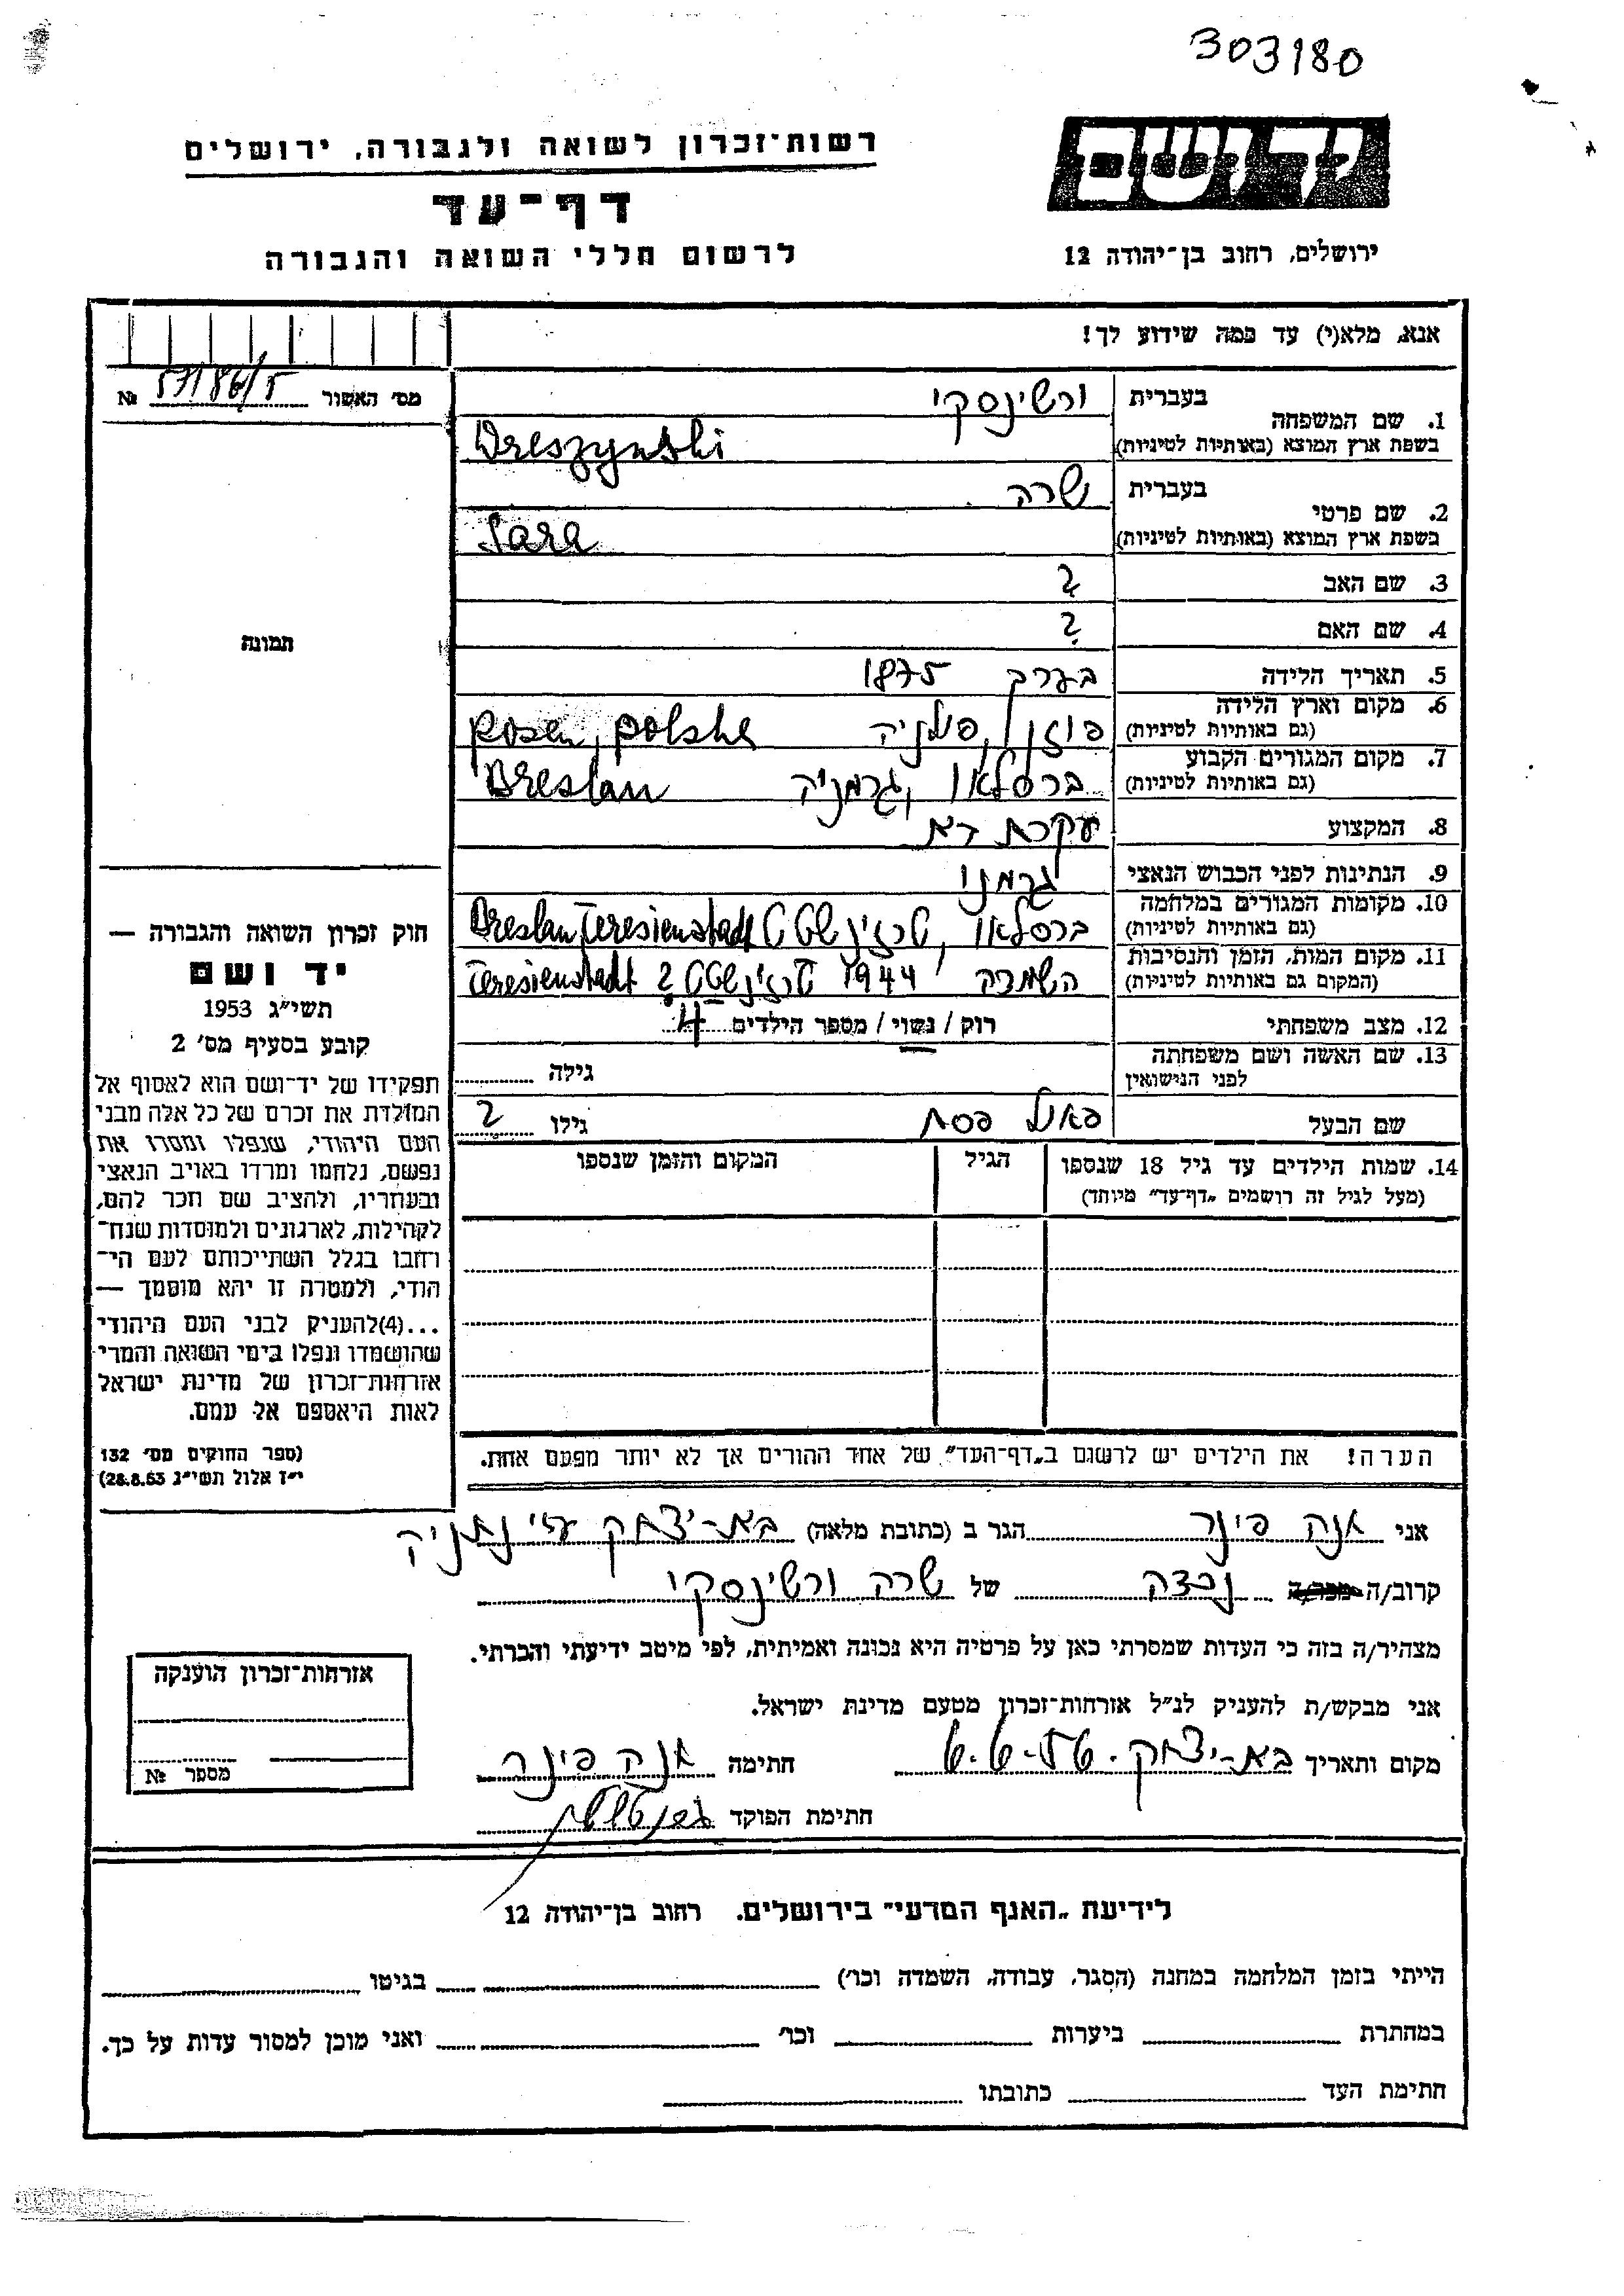 303180
יד ושם
רשות־זכרון לשואה ולגבורה, ירושלים
דף־עד
לרשום חללי השואה והגבורה
ירושלים, רחוב בן־יהודה 12
אנא, מלא(י) עד כמה שידוע לך!
מס׳ האשור 57186/5 №
תמונה
1. שם המשפחה
בעברית ורשינסקי
בשפת ארץ המוצא (באותיות לטיניות) Wreszynski
2. שם פרטי
בעברית שרה
בשפת ארץ המוצא (באותיות לטיניות) Sara
3. שם האב ?
4. שם האם ?
5. תאריך הלידה בערך 1875
6. מקום וארץ הלידה (גם באותיות לטיניות) פוזן, פולניה Posen, polska
7. מקום המגורים הקבוע (גם באותיות לטיניות) ברסלאו, גרמניה Breslau
8. המקצוע עקרת בית
9. הנתינות לפני הכבוש הנאצי גרמני
10. מקומות המגורים במלחמה (גם באותיות לטיניות) ברסלאו, טרזינשטט Breslau, Teresienstadt
11. מקום המות, הזמן והנסיבות (המקום גם באותיות לטיניות) השמדה 1944 טרזינשטט ? Teresienstadt
12. מצב משפחתי רוק / נשוי / מספר הילדים 4
13. שם האשה ושם משפחתה לפני הנישואין
גילה
שם הבעל פאול פסח גילו ?
14. שמות הילדים עד גיל 18 שנספו
(מעל לגיל זה רושמים „דף־עד״ מיוחד)
הגיל
המקום והזמן שנספו
הערה! את הילדים יש לרשום ב„דף־העד״ של אחד ההורים אך לא יותר מפעם אחת.
חוק זכרון השואה והגבורה —
יד ושם
תשי״ג 1953
קובע בסעיף מס׳ 2
תפקידו של יד־ושם הוא לאסוף אל
המולדת את זכרם של כל אלה מבני
העם היהודי, שנפלו ומסרו את
נפשם, נלחמו ומרדו באויב הנאצי
ובעוזריו, ולהציב שם וזכר להם,
לקהילות, לארגונים ולמוסדות שנח־
רבו בגלל השתייכותם לעם הי־
הודי, ולמטרה זו יהא מוסמך —
...(4)להעניק לבני העם היהודי
שהושמדו ונפלו בימי השואה והמרי
אזרחות־זכרון של מדינת ישראל
לאות היאספם אל עמם.
(ספר החוקים מס׳ 132
י״ז אלול תשי״ג 28.8.53)
אני אנה פינר הגר ב (כתובת מלאה) בית-יצחק ע״י נתניה
קרוב/ה נכדה של שרה ורשינסקי
מצהיר/ה בזה כי העדות שמסרתי כאן על פרטיה היא נכונה ואמיתית, לפי מיטב ידיעתי והכרתי.
אני מבקש/ת להעניק לנ״ל אזרחות־זכרון מטעם מדינת ישראל.
מקום ותאריך בית-יצחק חתימה אנה פינר
חתימת הפוקד
אזרחות־זכרון הוענקה
מספר №
לידיעת „האגף המדעי״ בירושלים. רחוב בן־יהודה 12
הייתי בזמן המלחמה במחנה (הסגר, עבודה, השמדה וכו׳) בגיטו
במחתרת ביערות וכו׳ ואני מוכן למסור עדות על כך.
חתימת העד כתובתו